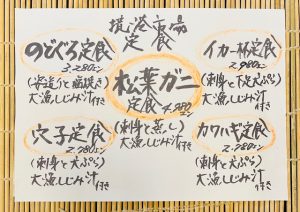 境港市場
定食
のどぐろ定食
3,280エン
(姿造りと塩焼き)
大漁しじみ汁付き
イカ一杯定食
2,980エン
(刺身と下足天ぷら)
大漁しじみ汁付き
松葉ガニ
定食 4,980エン
(刺身と蒸し)
大漁しじみ汁付き
穴子定食
2,780エン
(刺身と天ぷら)
大漁しじみ汁付き
カワハギ定食
2,980エン
(刺身と天ぷら)
大漁しじみ汁付き